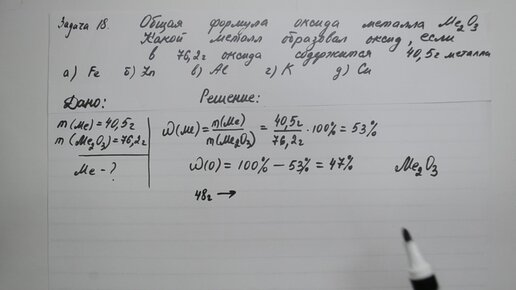 Задача 18. Общая формула оксида металла Me₂O₃
Какой металл образовал оксид, если
в 76,2г оксида содержится 40,5г металла
а) Fe б) Zn в) Al г) K д) Cu
Дано: Решение:
m(Me)=40,5г
m(Me₂O₃)=76,2г
Me - ?
ω(Me) = m(Me)/m(Me₂O₃) = 40,5г/76,2г · 100% = 53%
ω(O) = 100% - 53% = 47% Me₂O₃
48г →